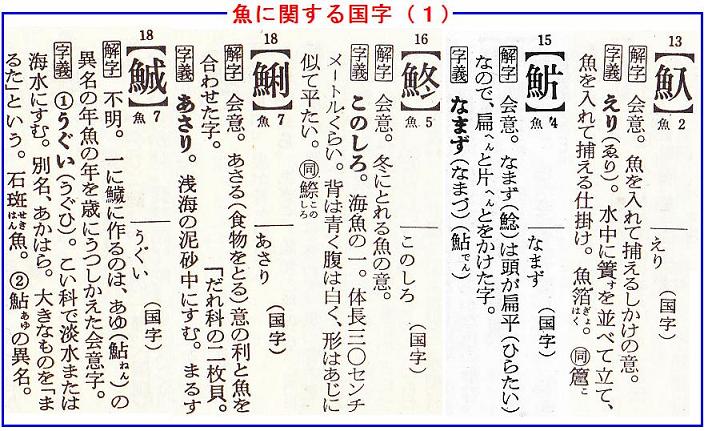 魚に関する国字（1）
13
【魞】魚2　えり　（国字）
解字 会意。魚を入れて捕えるしかけの意。
字義 えり（ゑり）。水中に簀すを並べて立て、
魚を入れて捕える仕掛け。魚箔ぎょはく。
15
【魸】魚4　なまず　（国字）
解字 会意。なまず（鯰）は頭が扁平（ひらたい）
なので、扁へんと片へんとをかけた字。
字義 なまず（なまづ）（鮎でん）
16
【鮗】魚5　このしろ　（国字）
解字 会意。冬にとれる魚の意。
字義 このしろ。海魚の一。体長三〇センチ
メートルくらい。背は青く腹は白く、形はあじに
似て平たい。同 鰶このしろ
18
【鯏】魚7　あさり　（国字）
解字 会意。あさる（食物をとる）意の利と魚を
合わせた字。
「だれ科の二枚貝。
字義 あさり。浅海の泥砂中にすむ。まるす
18
【鯎】魚7　うぐい　（国字）
解字 不明。一に鱥に作るのは、あゆ（鮎ねん）の
異名の年魚の年を歳にうつしかえた会意字。
字義 ①うぐい（うぐひ）。こい科で淡水または
海水にすむ。別名、あかはら。大きなものを「ま
るた」という。石斑せきはん魚。②鮎あゆの異名。